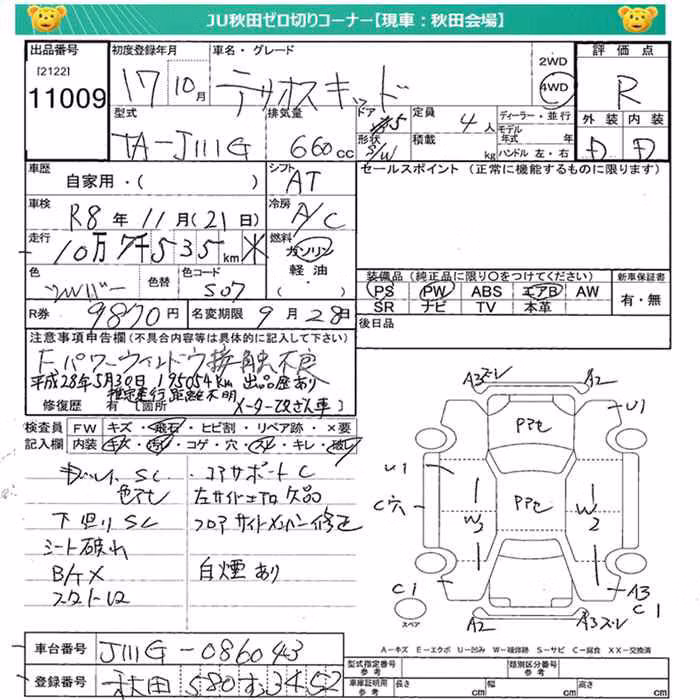 JU秋田ゼロ切りコーナー【現車：秋田会場】
出品番号 初度登録年月 車名・グレード 評価点
[2122] 11009 17 10月 テリオスキッド 2WD 4WD R
型式 排気量 ドア 5 定員 4人 ディーラー・並行 外装 内装
TA-J111G 660cc 形状 S/W 積載 kg モデル年式 年 ハンドル 左・右 D D
車歴 シフト セールスポイント（正常に機能するものに限ります）
自家用・（ ） AT
車検 冷房
R8年11月(21日) A/C
走行 燃料
10万7千535km ※ ガソリン
軽油
色 色替 色コード 装備品（純正品に限り○をつけてください） 新車保証書
シルバー S07 PS PW ABS エアB AW 有・無
SR ナビ TV 本革
R券 9870円 名変期限 9月28日 後日品
注意事項申告欄（不具合内容等は具体的に記入して下さい）
Fパワーウィンドウ接触不良
平成28年5月30日 195054km 出品歴あり
推定走行距離不明
修復歴 有 [箇所 メーター改ざん車]
検査員記入欄 FW キズ・飛石・ヒビ割・リペア跡・×要
内装 キズ・汚れ・コゲ・穴・スレ・キレ・破れ
SC コアサポートC
色アセ 左サイドエアロ欠品
下廻りSC フロアサイドメンバー修正
シート破れ
B/ケ× 白煙あり
A3ズレ A2
U1 Pアセ
U1
C穴 Pアセ
W3 W2
C1 A3
C1
スペア A2 A3ズレ
A-キズ E-エクボ U-凹み W-補修跡 S-サビ C-腐食 XX-交換済
車台番号 J111G-086043
登録番号 秋田 580 す 3452
型式指定番号 参考 類別区分番号 参考
車庫証明用 参考 長さ cm 幅 cm 高さ cm